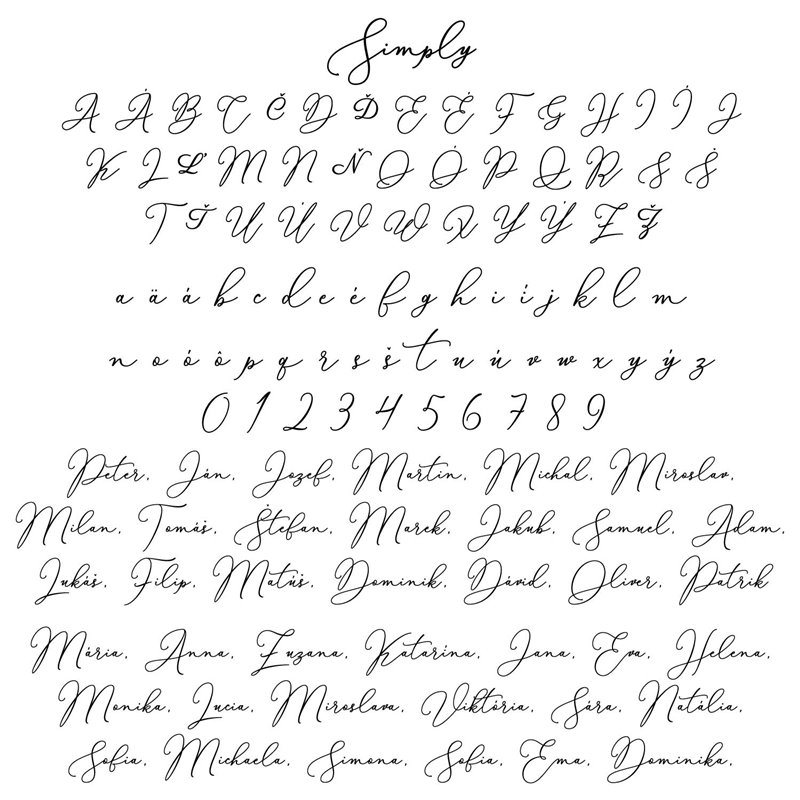 Simply
A Á B C Č D Ď E É F G H I Í J
K L Ľ M N Ň O Ó P Q R S Š
T Ť U Ú V W X Y Ý Z Ž
a ä á b c d e é f g h i í j k l m
n o ó ô p q r s š t u ú v w x y ý z
0 1 2 3 4 5 6 7 8 9
Peter, Ján, Jozef, Martin, Michal, Miroslav,
Milan, Tomáš, Štefan, Marek, Jakub, Samuel, Adam,
Lukáš, Filip, Matúš, Dominik, Dávid, Oliver, Patrik
Mária, Anna, Zuzana, Katarína, Jana, Eva, Helena,
Monika, Lucia, Miroslava, Viktória, Sára, Natália,
Sofia, Michaela, Simona, Sofia, Ema, Dominika,